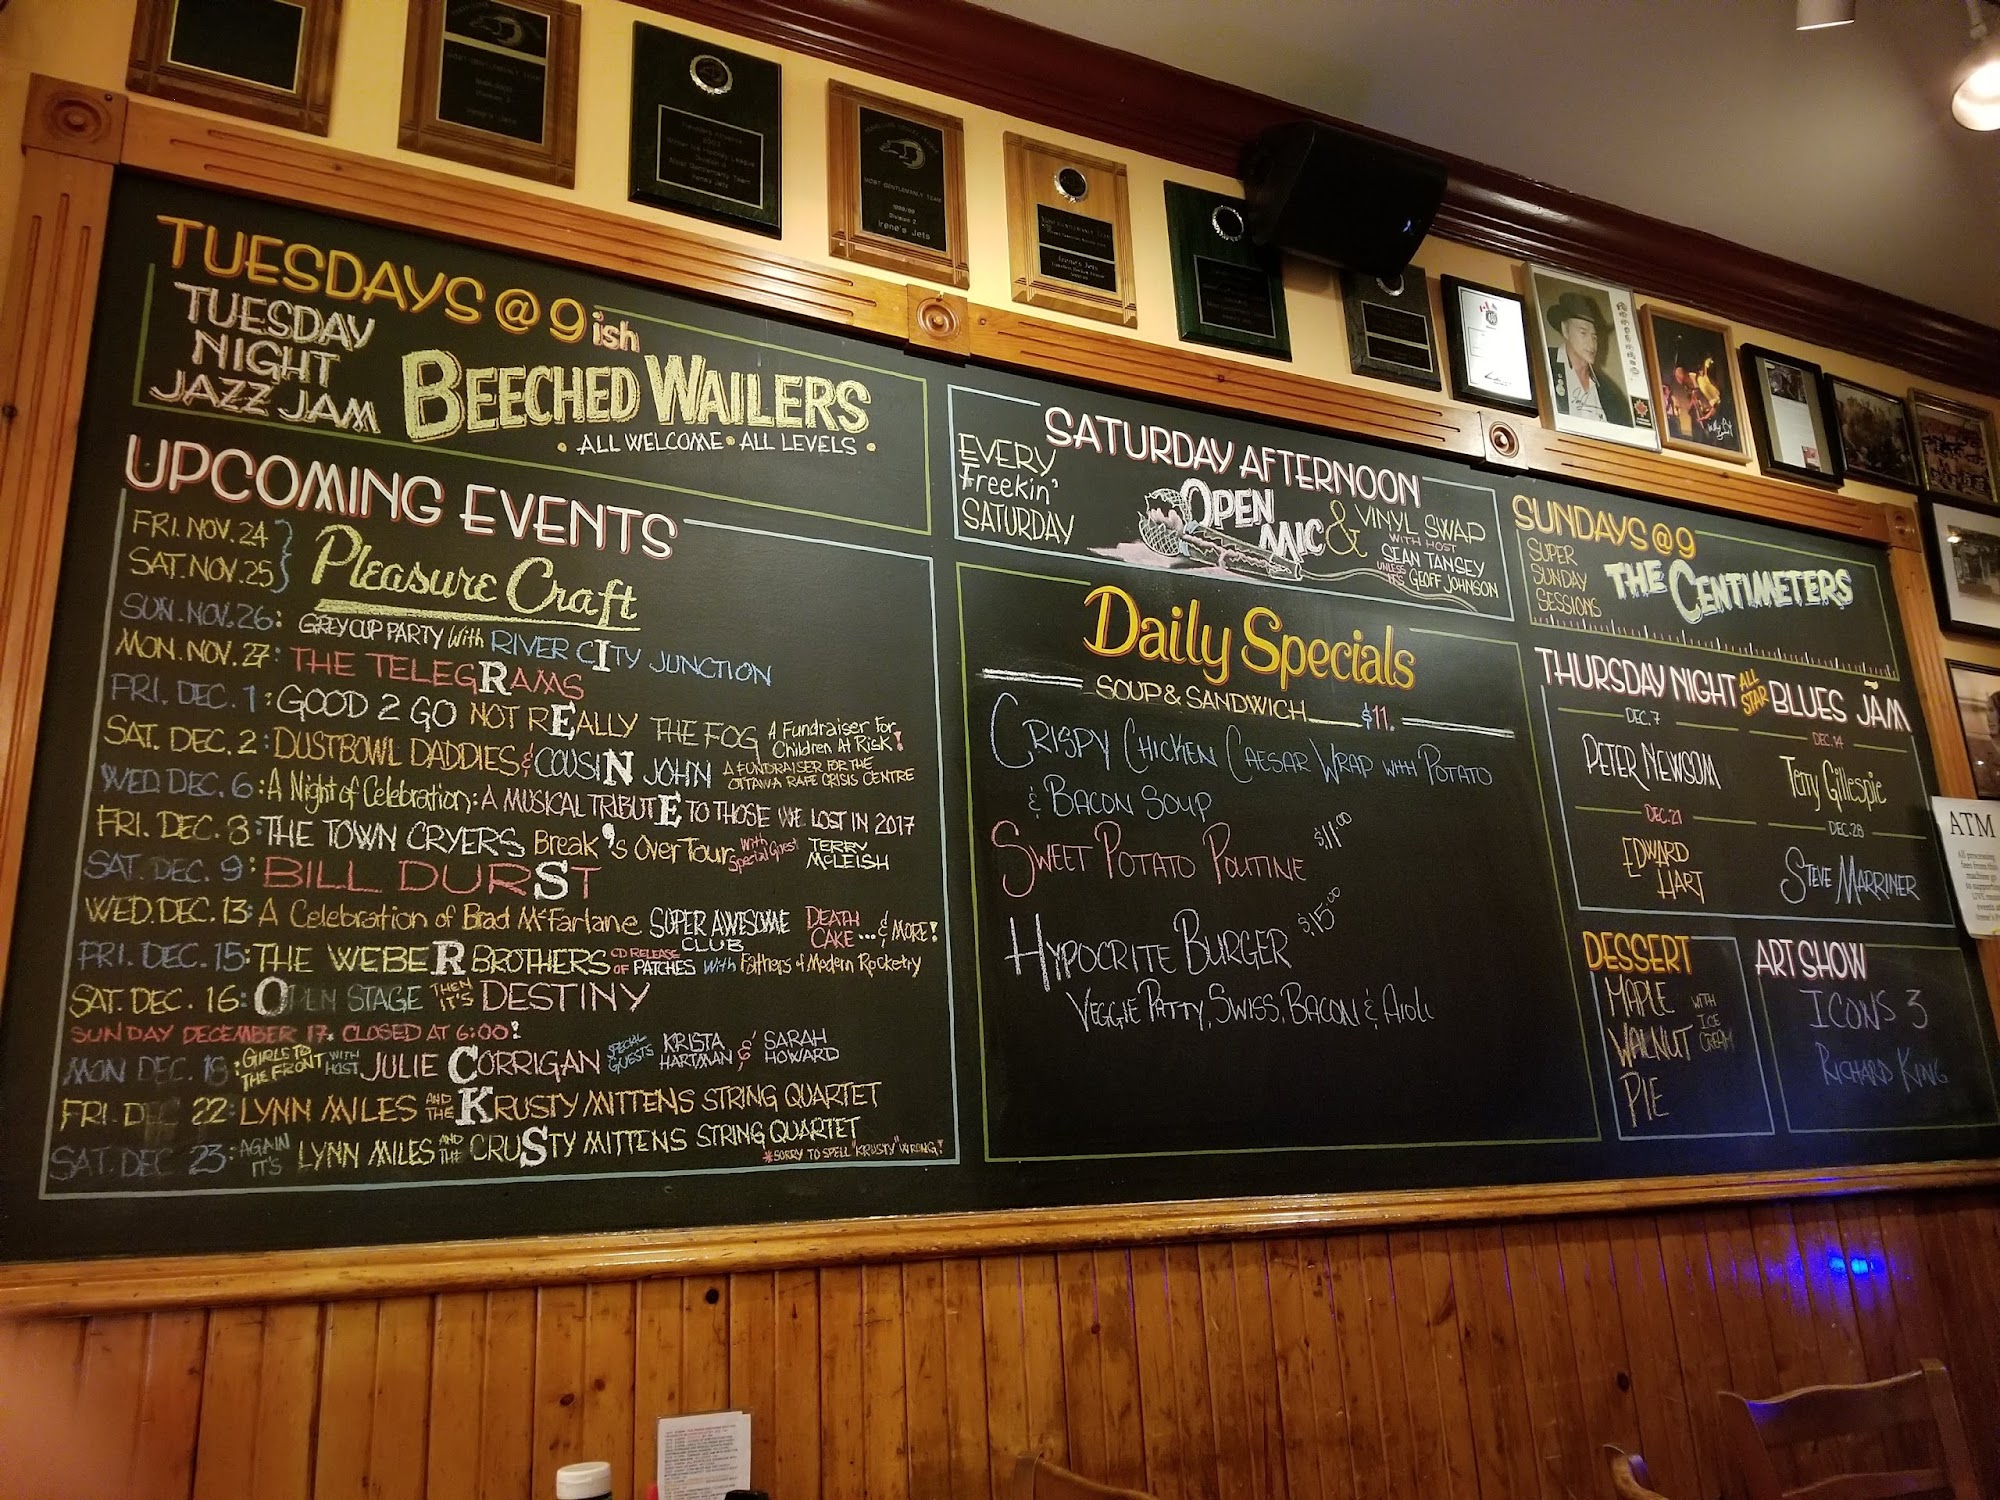 MOST GENTLEMANLY TEAM
1998/99
Division 2
Irene's Jets
Irene's Jets
TUESDAYS @ 9ish
TUESDAY
NIGHT
JAZZ JAM
BEECHED WAILERS
• ALL WELCOME • ALL LEVELS •
UPCOMING EVENTS
FRI. NOV. 24
SAT. NOV. 25
Pleasure Craft
SUN. NOV. 26: GREY CUP PARTY with RIVER CITY JUNCTION
MON. NOV. 27: THE TELEGRAMS
FRI. DEC. 1: GOOD 2 GO NOT REALLY THE FOG A Fundraiser For Children At Risk!
SAT. DEC. 2: DUSTBOWL DADDIES & COUSIN JOHN A FUNDRAISER FOR THE OTTAWA RAPE CRISIS CENTRE
WED. DEC. 6: A Night of Celebration: A MUSICAL TRIBUTE TO THOSE WE LOST IN 2017
FRI. DEC. 8: THE TOWN CRYERS Break's Over Tour with Special Guest TERRY McLEISH
SAT. DEC. 9: BILL DURST
WED. DEC. 13: A Celebration of Brad McFarlane SUPER AWESOME CLUB DEATH CAKE ... & MORE!
FRI. DEC. 15: THE WEBER BROTHERS CD RELEASE OF PATCHES with Fathers of Modern Rocketry
SAT. DEC. 16: OPEN STAGE THEN IT'S DESTINY
SUNDAY DECEMBER 17. CLOSED AT 6:00!
MON DEC. 18: GIRLS TO THE FRONT WITH HOST JULIE CORRIGAN SPECIAL GUESTS KRISTA HARTMAN & SARAH HOWARD
FRI. DEC 22: LYNN MILES AND THE KRUSTY MITTENS STRING QUARTET
SAT. DEC 23: AGAIN IT'S LYNN MILES AND THE CRUSTY MITTENS STRING QUARTET
*SORRY TO SPELL "KRUSTY" WRONG!
EVERY
Freekin'
SATURDAY
SATURDAY AFTERNOON
OPEN
MIC
& VINYL SWAP
WITH HOST
SEAN TANSEY
UNLESS IT'S GEOFF JOHNSON
Daily Specials
SOUP & SANDWICH $11.
CRISPY CHICKEN CAESAR WRAP WITH POTATO
& BACON SOUP
SWEET POTATO POUTINE $11.00
HYPOCRITE BURGER $15.00
VEGGIE PATTY, SWISS, BACON & AIOLI
SUNDAYS @ 9
SUPER
SUNDAY
SESSIONS
THE CENTIMETERS
THURSDAY NIGHT ALL STAR BLUES JAM
DEC. 7
PETER NEWSOM
DEC. 14
Terry Gillespie
DEC. 21
EDWARD
HART
DEC. 28
STEVE MARRINER
DESSERT
MAPLE
WALNUT
PIE
WITH
ICE
CREAM
ART SHOW
ICONS 3
RICHARD KING
ATM